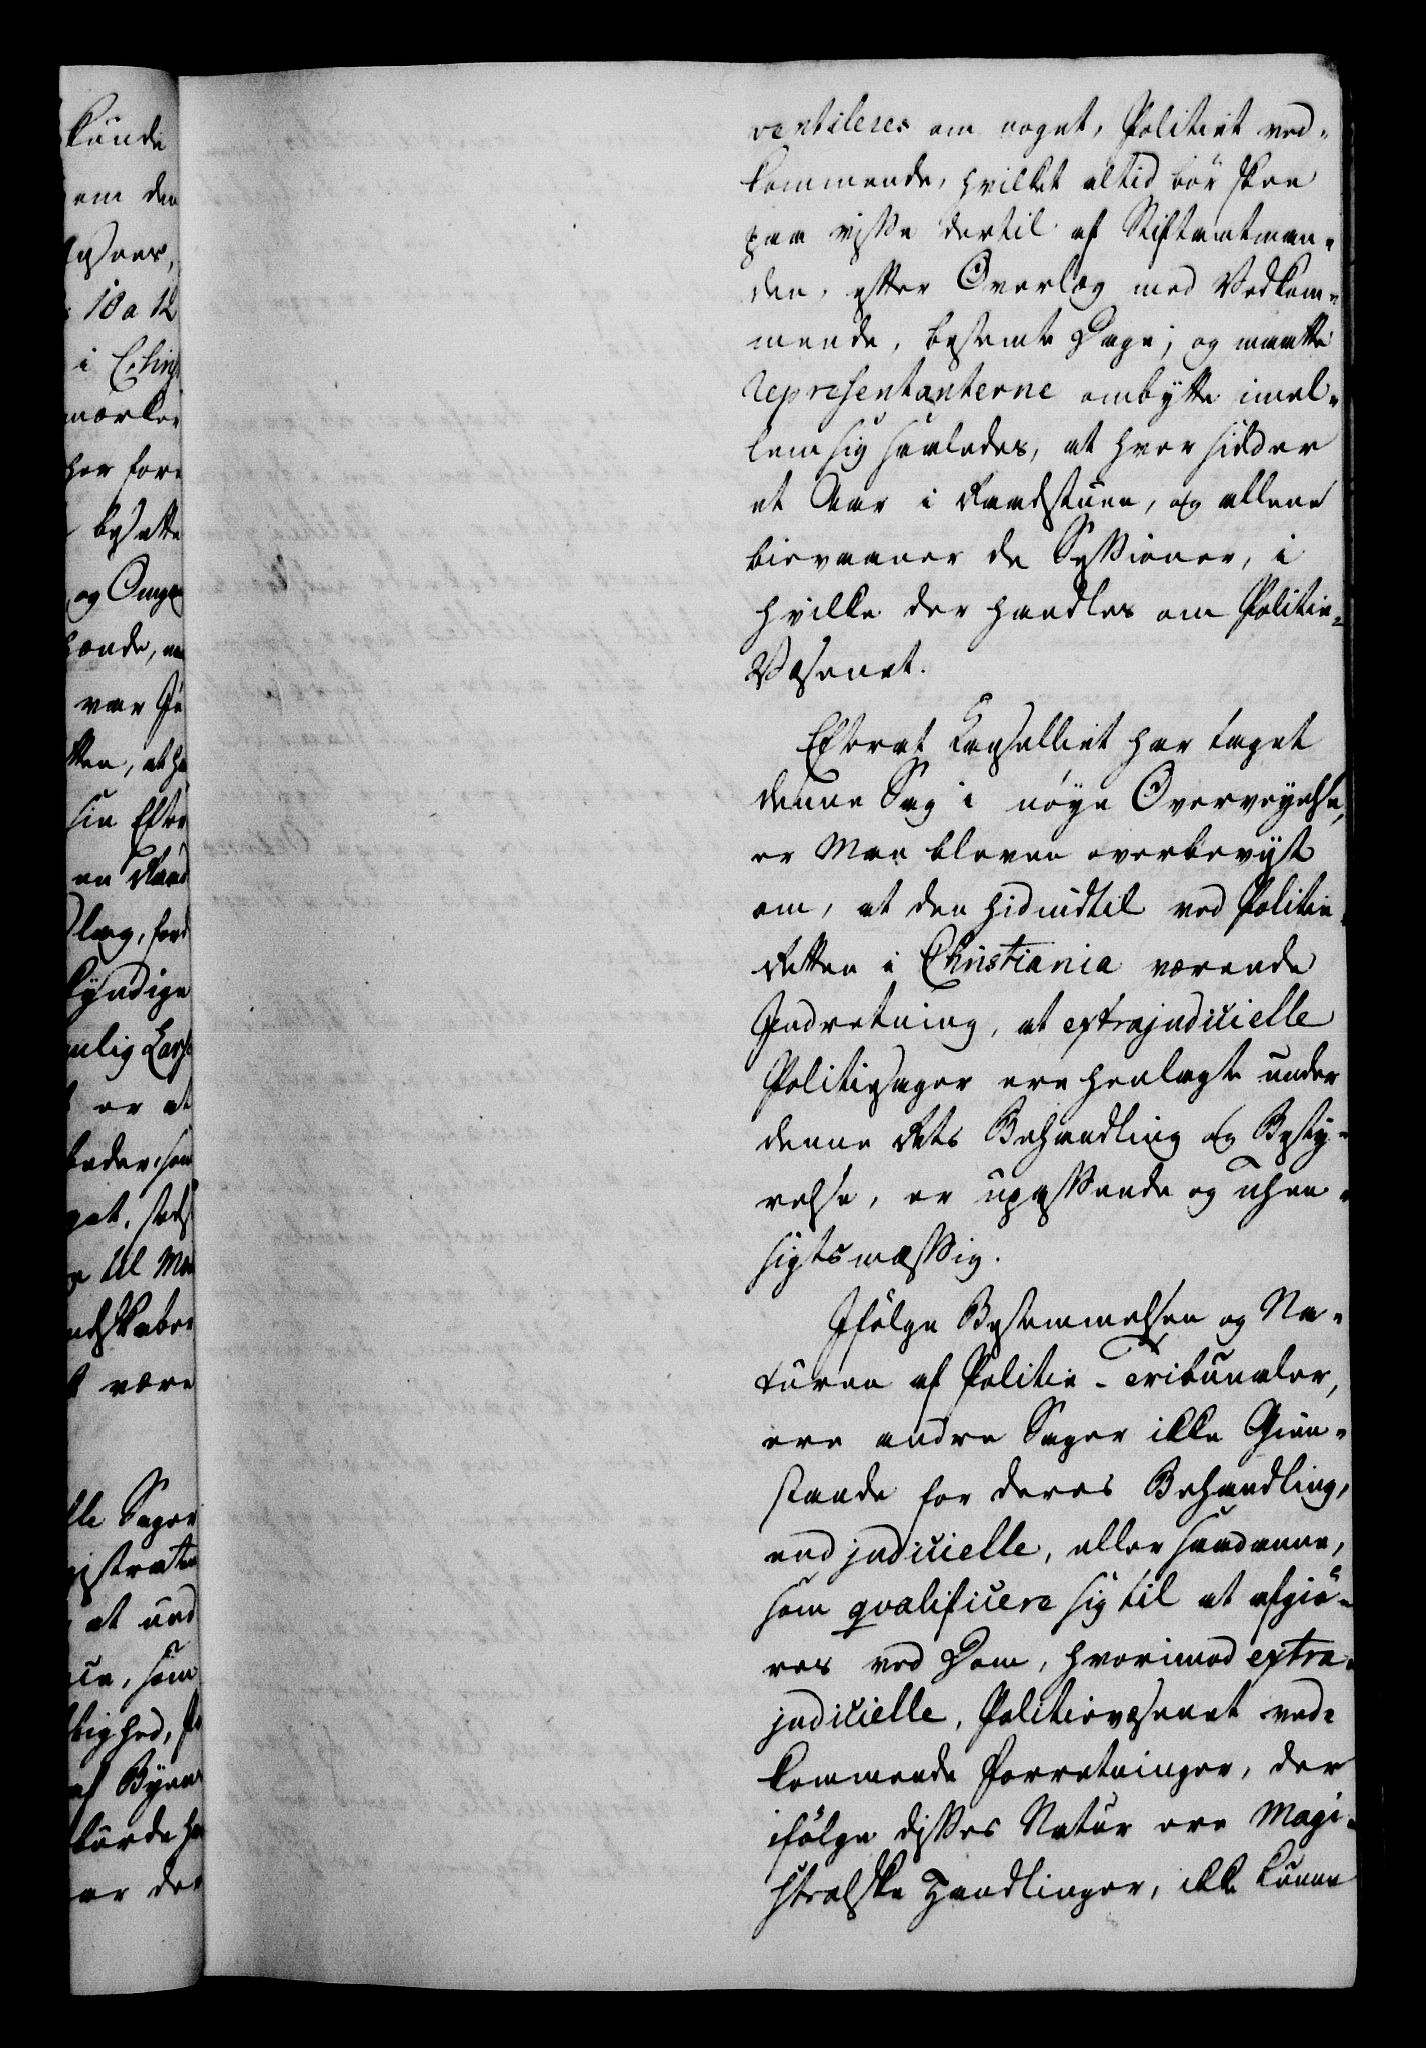 kunde
em den
10 a 12
i Chri
mærke
her for
besatte
og Omge
hænde,
var
tten, at ha
sin Efter
en Raad
læg, ford
kyndige
er at
beder, som
get,
til
ndskaber
være
lle Sager
gistraten
at und
som
lighed,
af Byens
burde
ar der
ventileres om noget, Politiet ved-
kommende, hvilket altid bör skee
paa visse dertil af Stiftamtman-
den, efter Overlæg med Vedkom-
mende, bestemte Dage; og maatte
repræsentanterne ombytte imel-
lem sig saaledes, at hver sidder
et Aar i Raadstuen, og allene
bievaaner de Sessioner, i
hvilke der handles om Politie-
Væsenet.
Efterat Cancelliet har taget
denne Sag i nøye Overveyelse,
er Man bleven overbevyst
om, at den hidindtil ved Politie
Retten i Christiania værende
Indretning, at extrajudicielle
Politiesager ere henlagte under
denne Rets Behandling og Besty-
relse, er upassende og uhen-
sigtsmæssig.
Ifølge Bestemmelsen og Na-
turen af Politie-Tribunaler,
ere andre Sager ikke Gien-
stande for deres Behandling,
end judicielle, eller saadanne,
som qvalificere sig til at afgiö-
res ved Dom, hvorimod extra-
judicielle, Politievæsenet ved-
kommende Forretninger, der
ifølge disses Natur ere Magi-
stratske Handlinger, ikke kunne